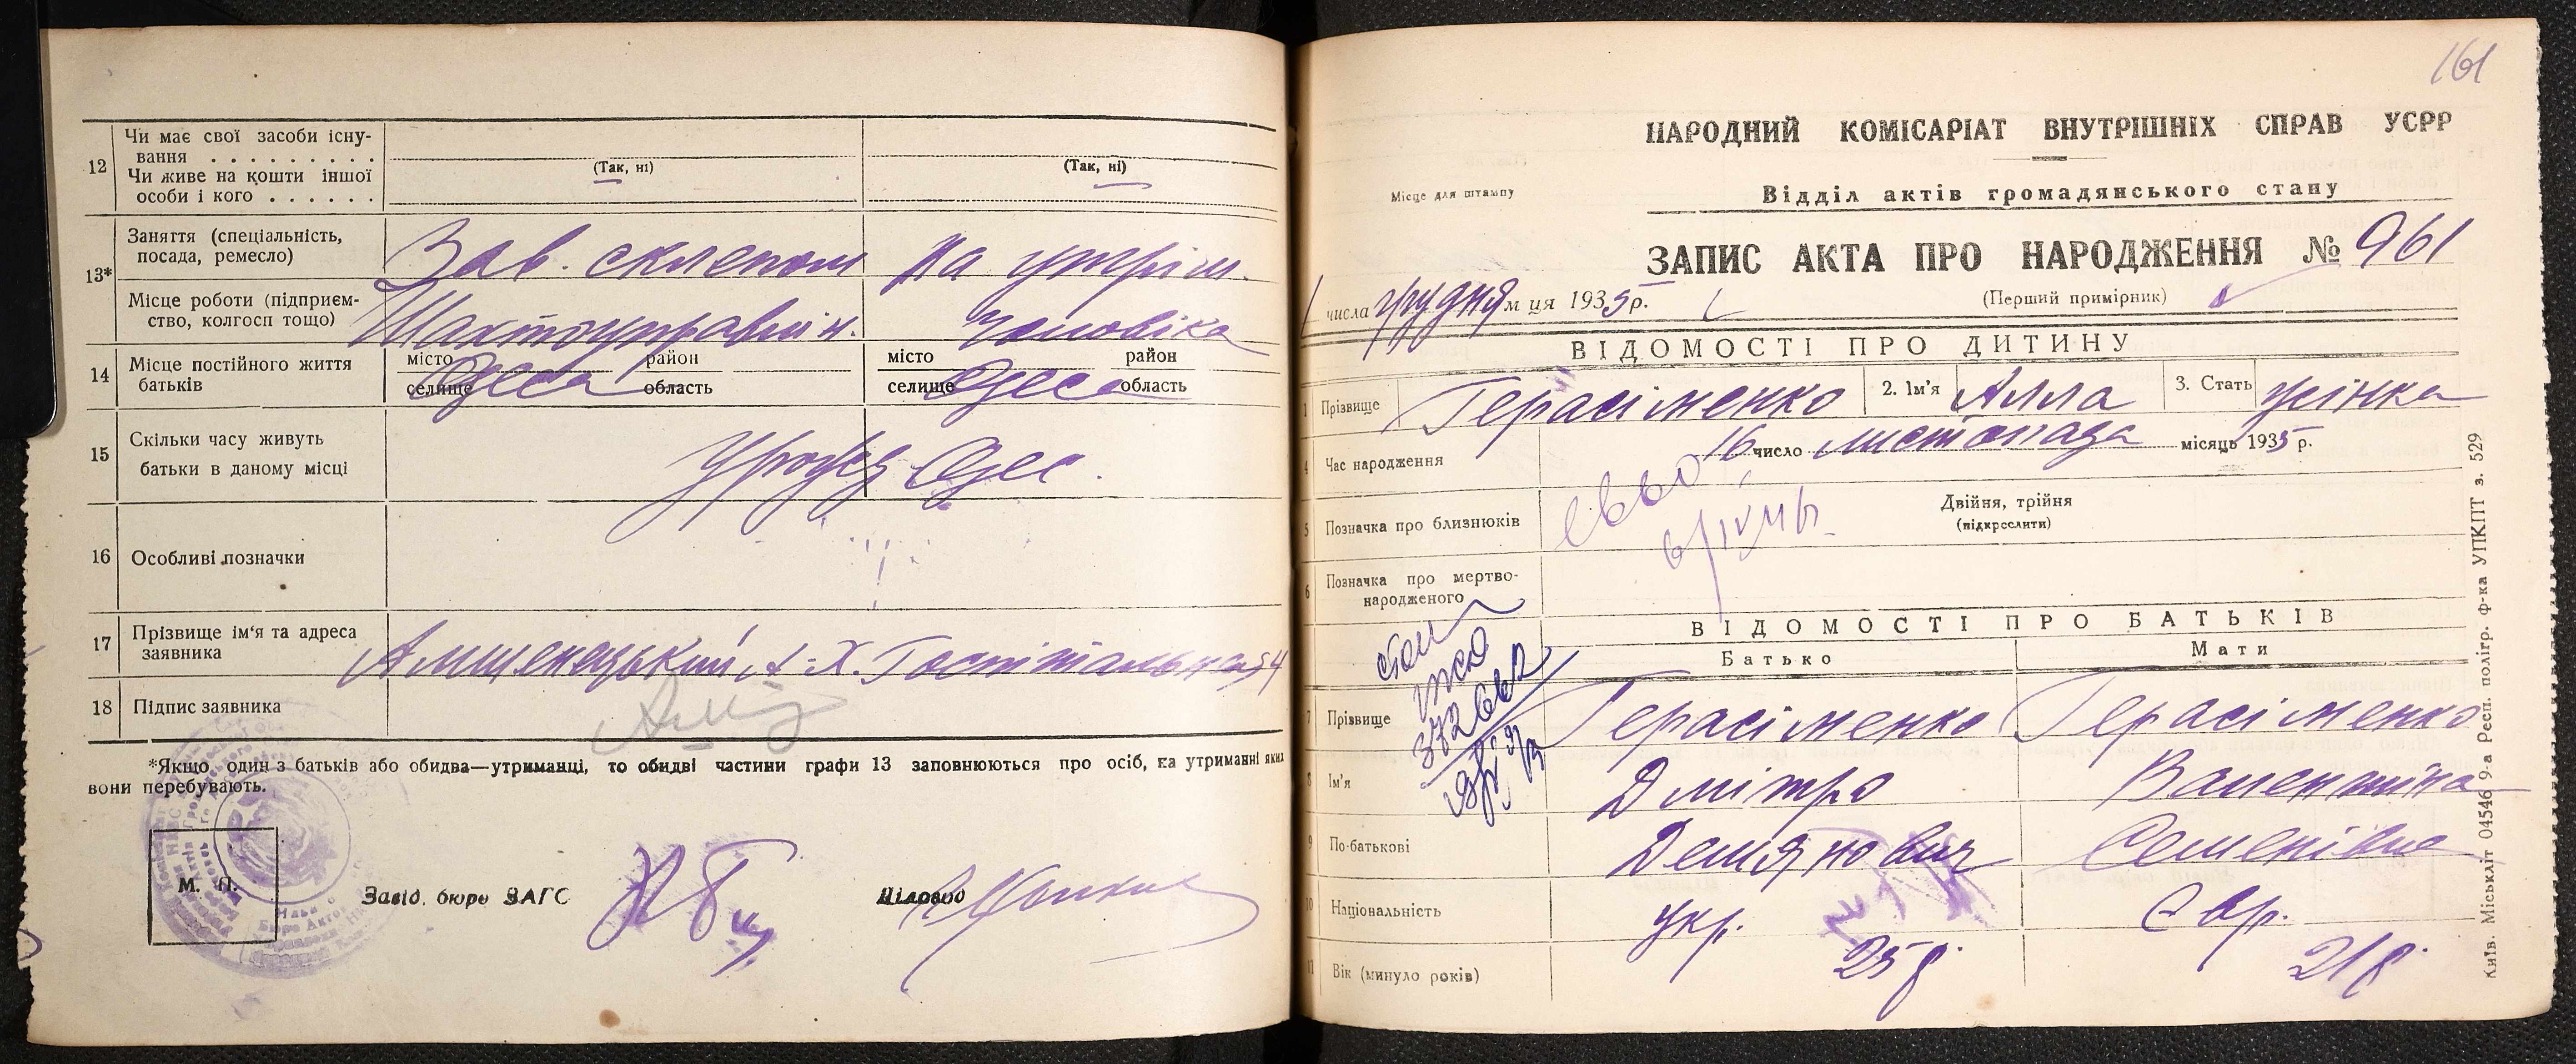 12 Чи має свої засоби існу-
вання . . . . . . . . .
Чи живе на кошти іншої
особи і кого . . . . . .
(Так, ні) (Так, ні)
13* Заняття (спеціальність,
посада, ремесло)
Зав. склепом На утрім.
Місце роботи (підприєм-
ство, колгосп тощо)
Шахтоуправлін. Чоловіка
14 Місце постійного життя
батьків
місто район місто район
селище область селище область
Одеса Одеса
15 Скільки часу живуть
батьки в даному місці
Одес.
16 Особливі позначки
17 Прізвище ім'я та адреса
заявника
А. Х. Госпітальна 54
18 Підпис заявника
*Якщо один з батьків або обидва—утриманці, то обидві частини графи 13 заповнюються про осіб, на утриманні яких
вони перебувають.
М. П.
Завід. бюро ЗАГС
Діловод
161
НАРОДНИЙ КОМІСАРІАТ ВНУТРІШНІХ СПРАВ УСРР
Місце для штампу
Відділ актів громадянського стану
ЗАПИС АКТА ПРО НАРОДЖЕННЯ № 961
1 числа грудня м ця 1935 р.
(Перший примірник)
ВІДОМОСТІ ПРО ДИТИНУ
1 Прізвище Герасіменко 2. Ім'я Алла 3. Стать жінка
4 Час народження 16 число листопада місяць 1935 р.
5 Позначка про близнюків
Двійня, трійня
(підкреслити)
6 Позначка про мертво-
народженого
ВІДОМОСТІ ПРО БАТЬКІВ
Батько Мати
7 Прізвище Герасіменко Герасіменко
8 Ім'я Дмітро Валентіна
9 По-батькові Демянович Семенівна
10 Національність укр. Євр.
11 Вік (минуло років) 25 р. 21 р.
Київ. Міськліт 04546 9-а Респ. полігр. ф-ка УПКПТ з. 529